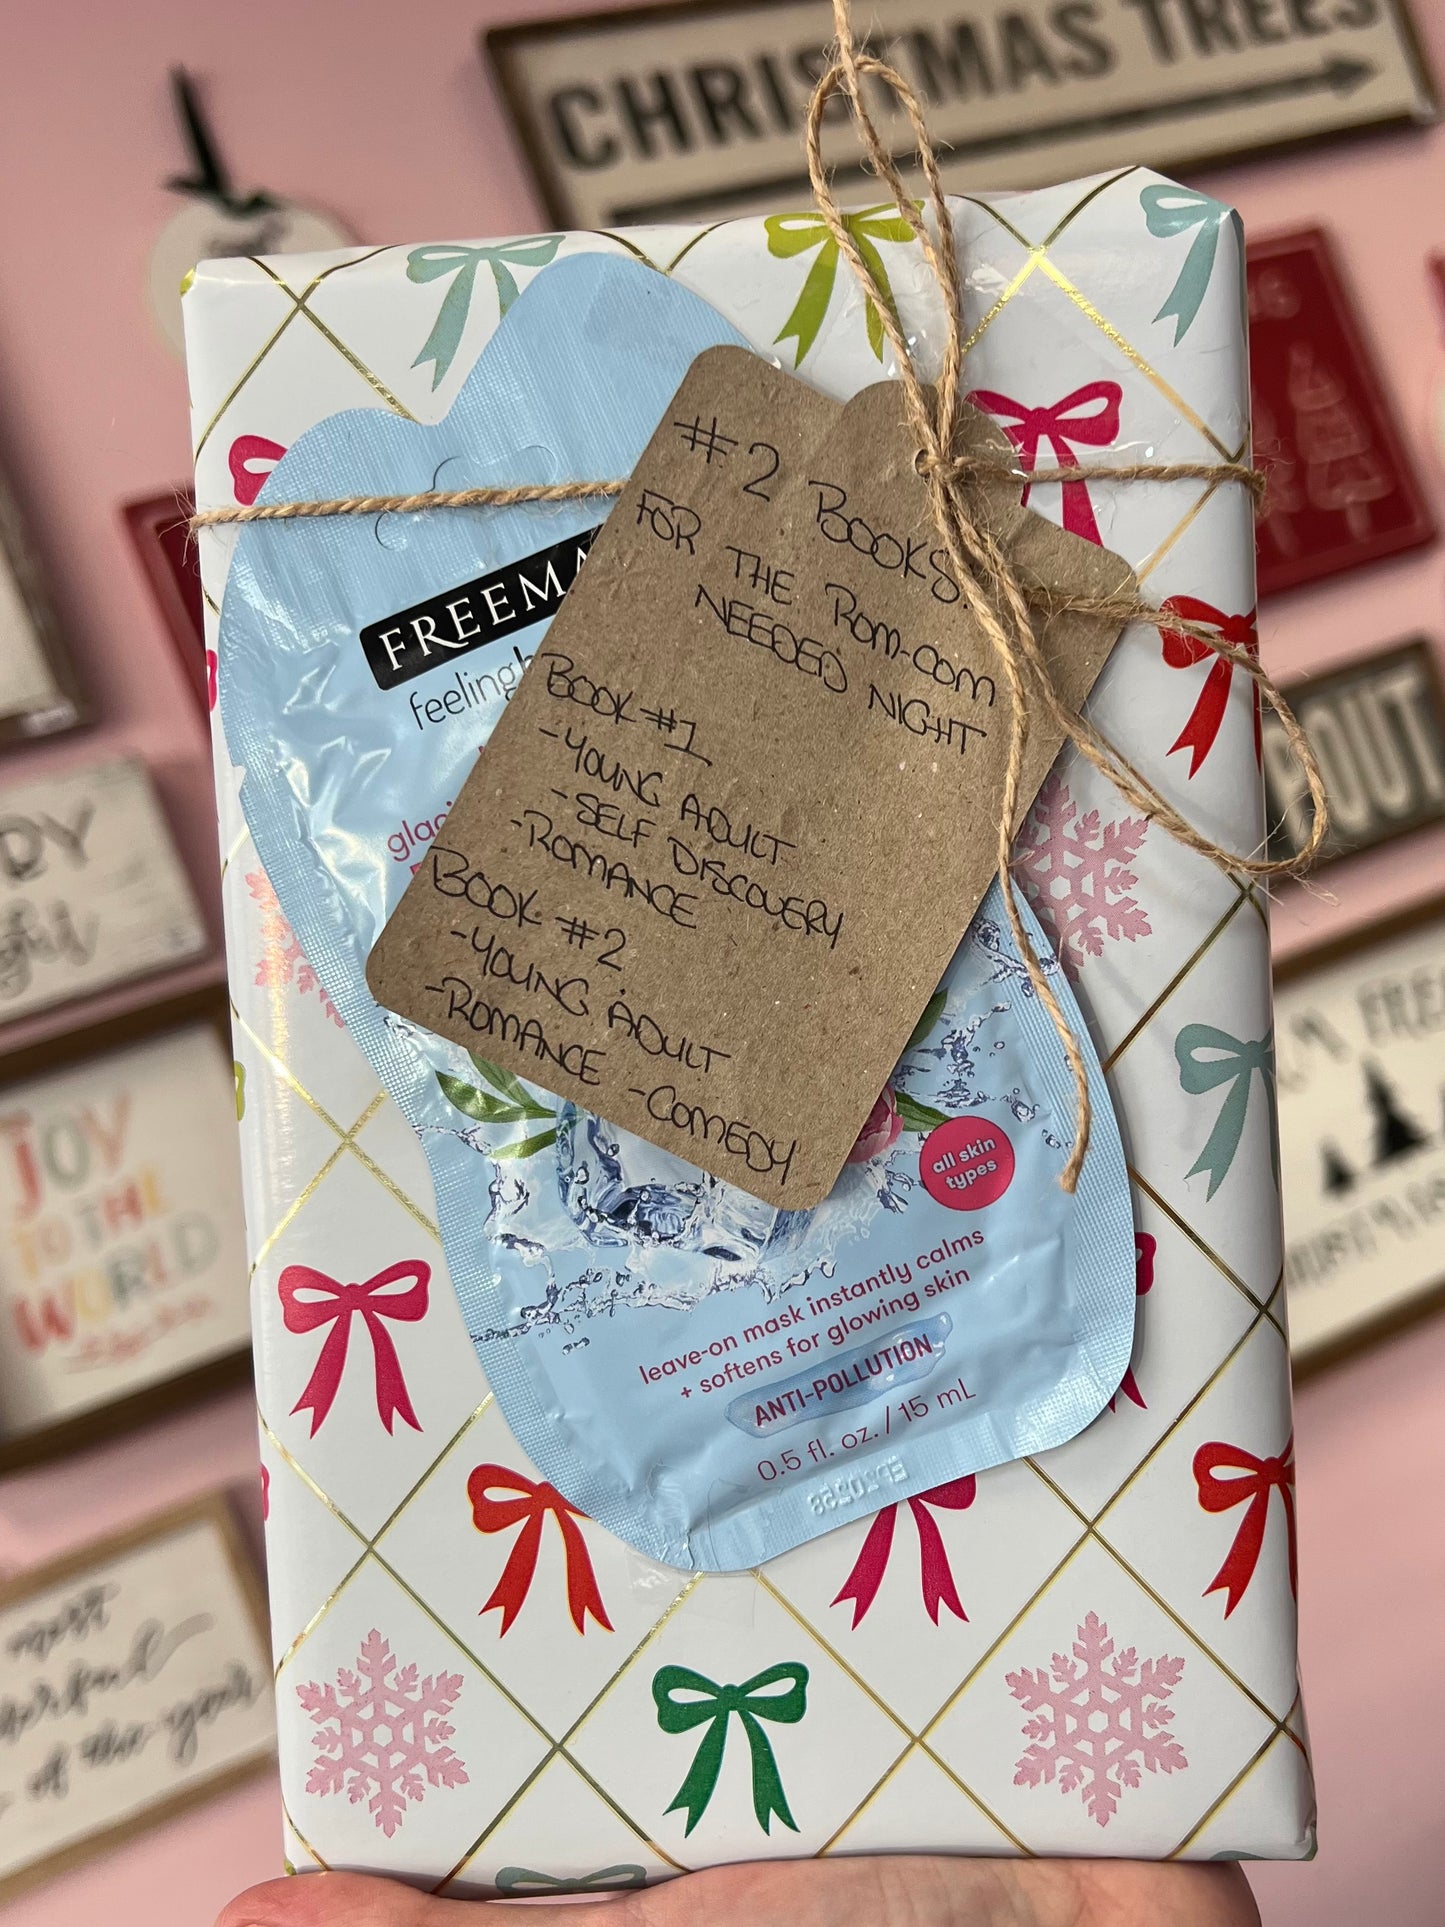 CHRISTMAS TREES
#2 BOOKS:
FOR THE ROM-COM
NEEDED NIGHT
BOOK #1
-YOUNG ADULT
-SELF DISCOVERY
-ROMANCE
BOOK #2
-YOUNG ADULT
-ROMANCE -COMEDY
FREEMA
feeling
glac
all skin
types
leave-on mask instantly calms
+ softens for glowing skin
ANTI-POLLUTION
0.5 fl. oz. / 15 mL
JOY
TO THE
WORLD
most
of the year
FREE
POUT